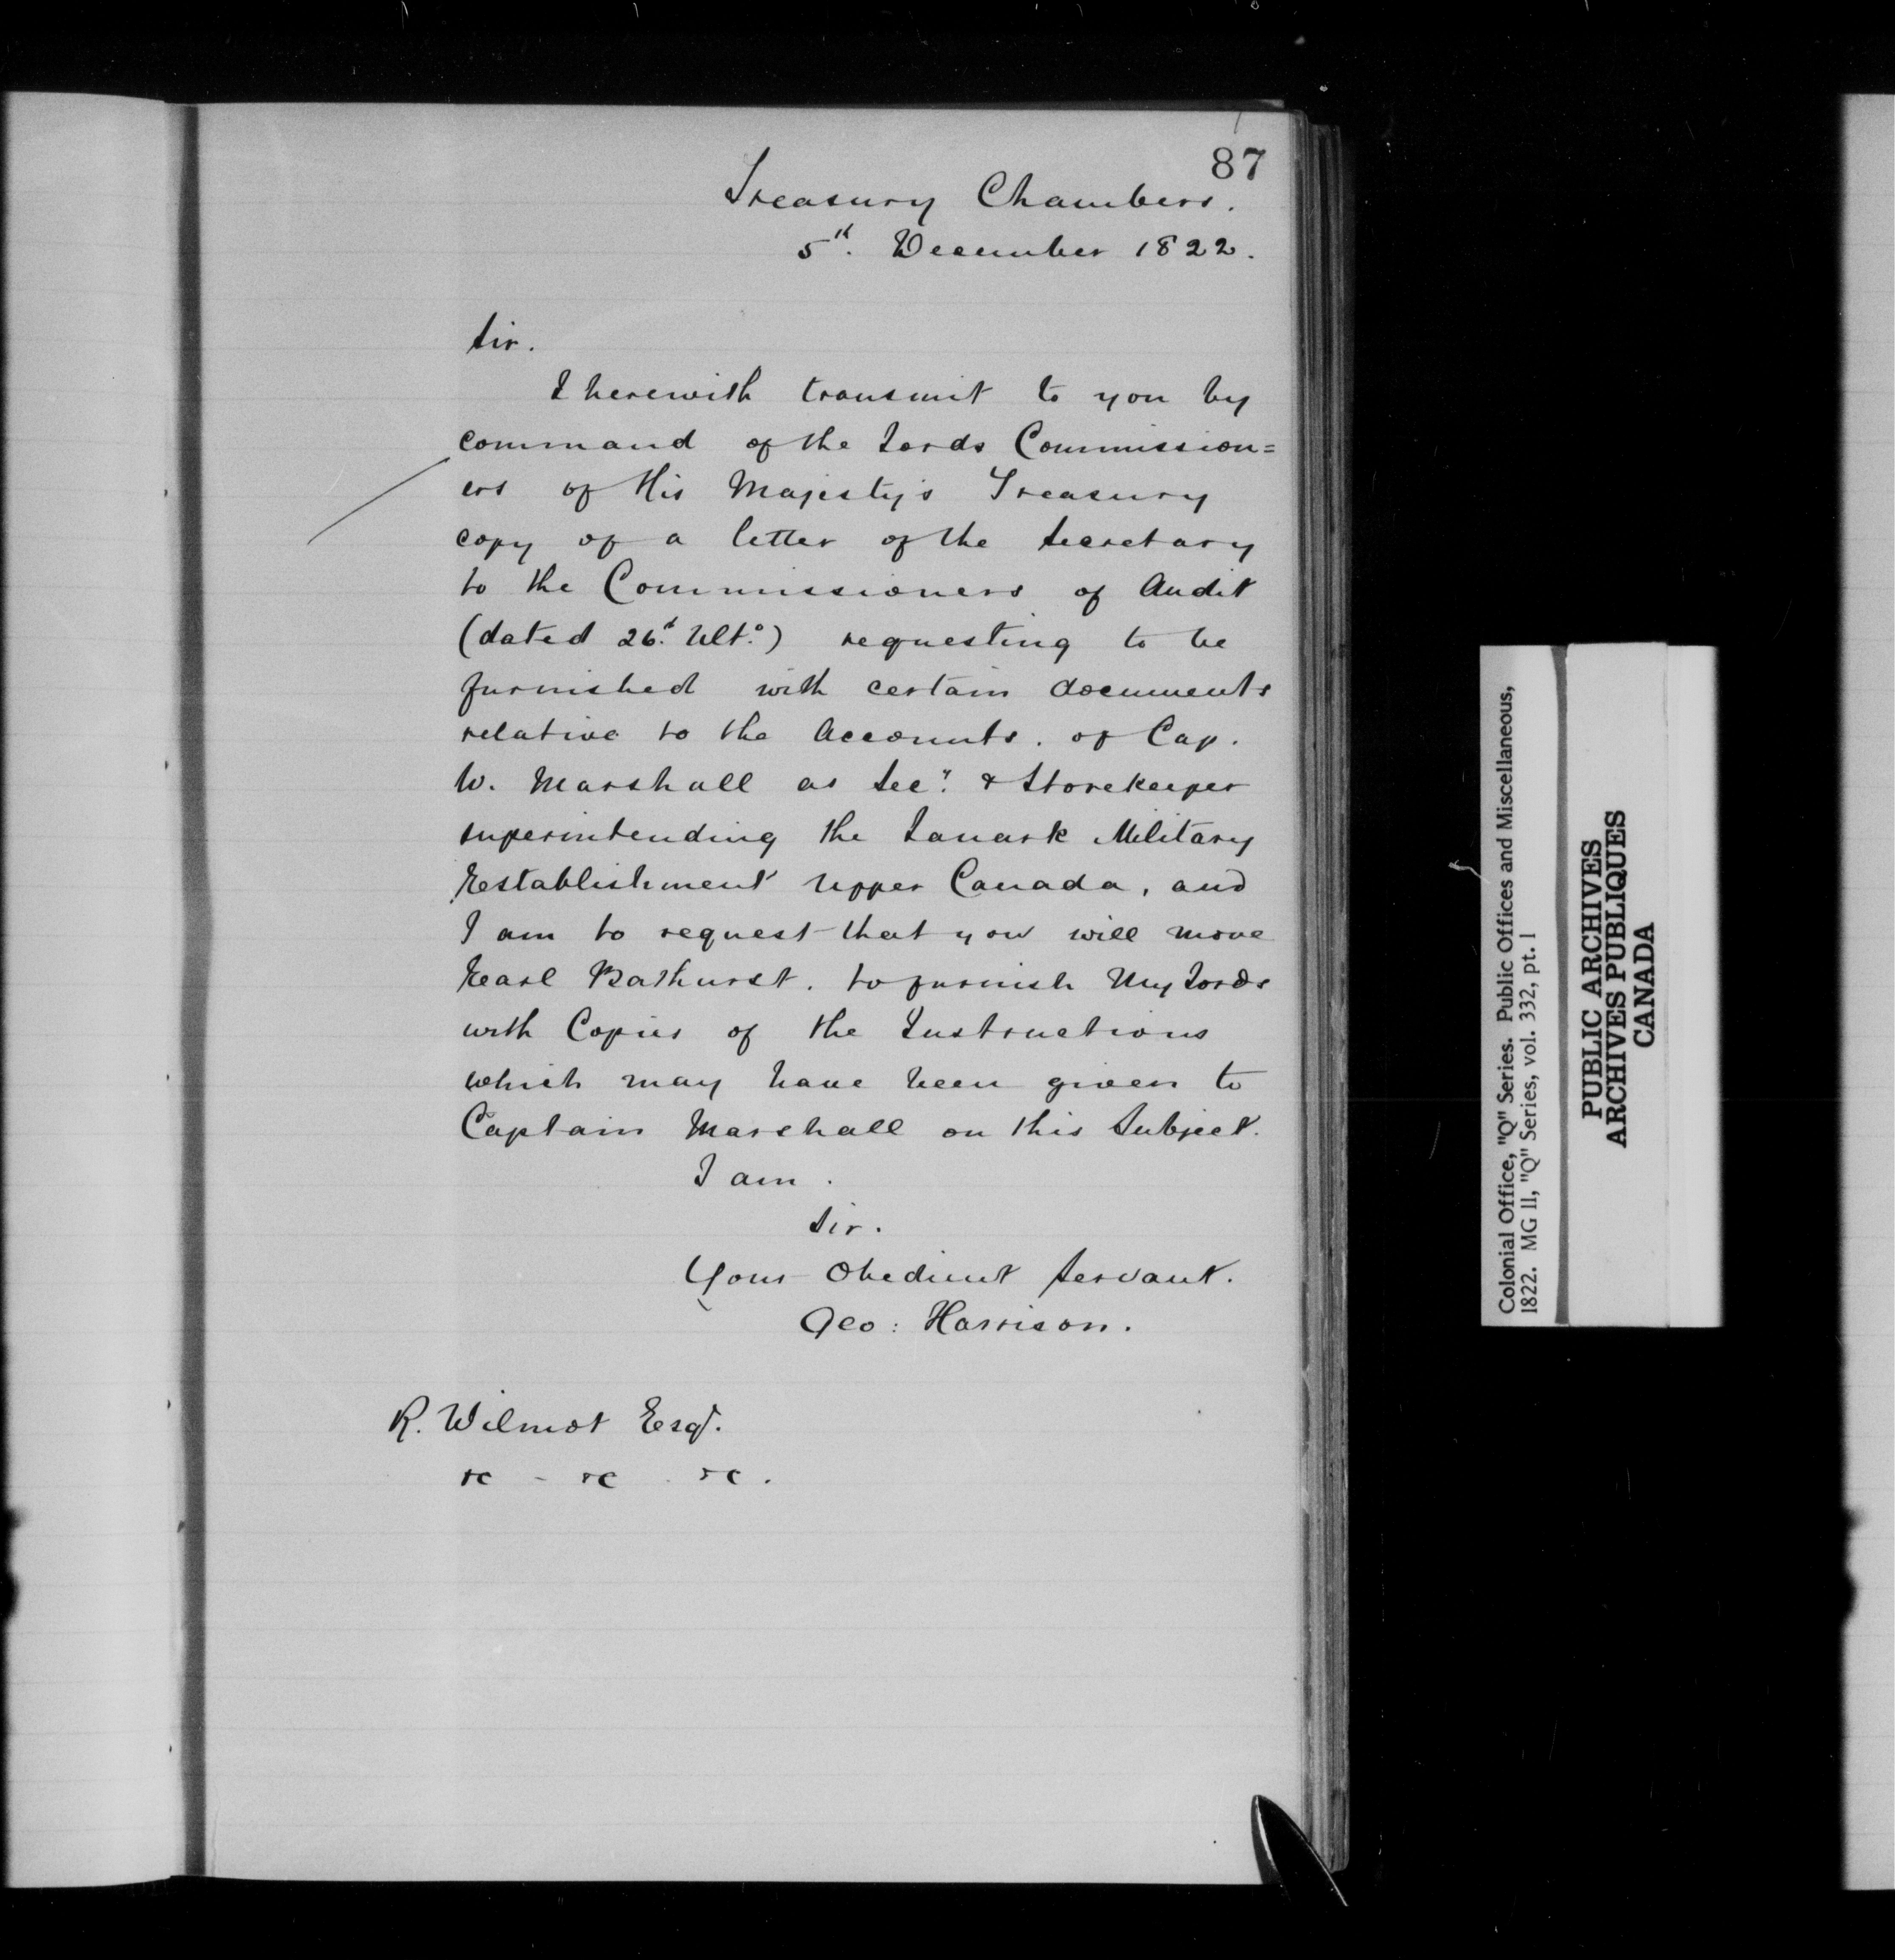 87
Treasury Chambers.
5th. December 1822.
Sir.
I herewith transmit to you by
command of the Lords Commission=
ers of His Majesty's Treasury
copy of a letter of the Secretary
to the Commissioners of Audit
(dated 26th. Ulto.) requesting to be
furnished with certain documents
relative to the Accounts. of Cap.
W. Marshall as Secy. & Storekeeper
superintending the Lanark Military
Establishment Upper Canada, and
I am to request that you will move
Earl Bathurst. to furnish My Lords
with Copies of the Instructions
which may have been given to
Captain Marshall on this Subject.
I am.
Sir.
Your Obedient Servant.
Geo: Harrison.
R. Wilmot Esqr.
&c - &c . &c.
Colonial Office, "Q" Series. Public Offices and Miscellaneous,
1822. MG 11, "Q" Series, vol. 332, pt. 1
PUBLIC ARCHIVES
ARCHIVES PUBLIQUES
CANADA